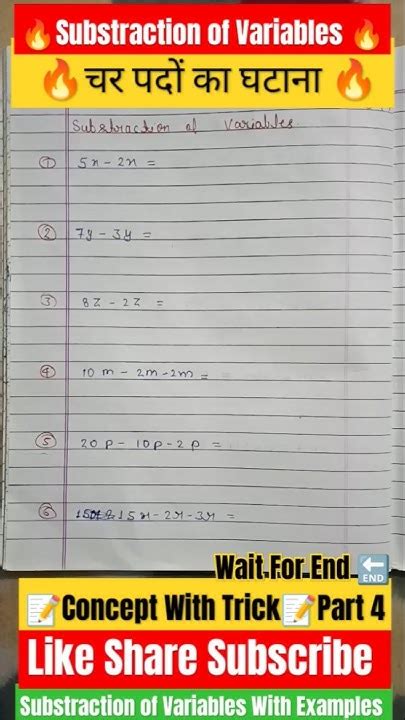 🔥Substraction of Variables 🔥
🔥चर पदों का घटाना 🔥
Substraction of Variables
① 5x - 2x =
② 7y - 3y =
③ 8z - 2z =
④ 10m - 2m - 2m =
⑤ 20p - 10p - 2p =
⑥ 15x - 2x - 3x =
Wait For End 🔚
📝Concept With Trick📝Part 4
Like Share Subscribe
Substraction of Variables With Examples